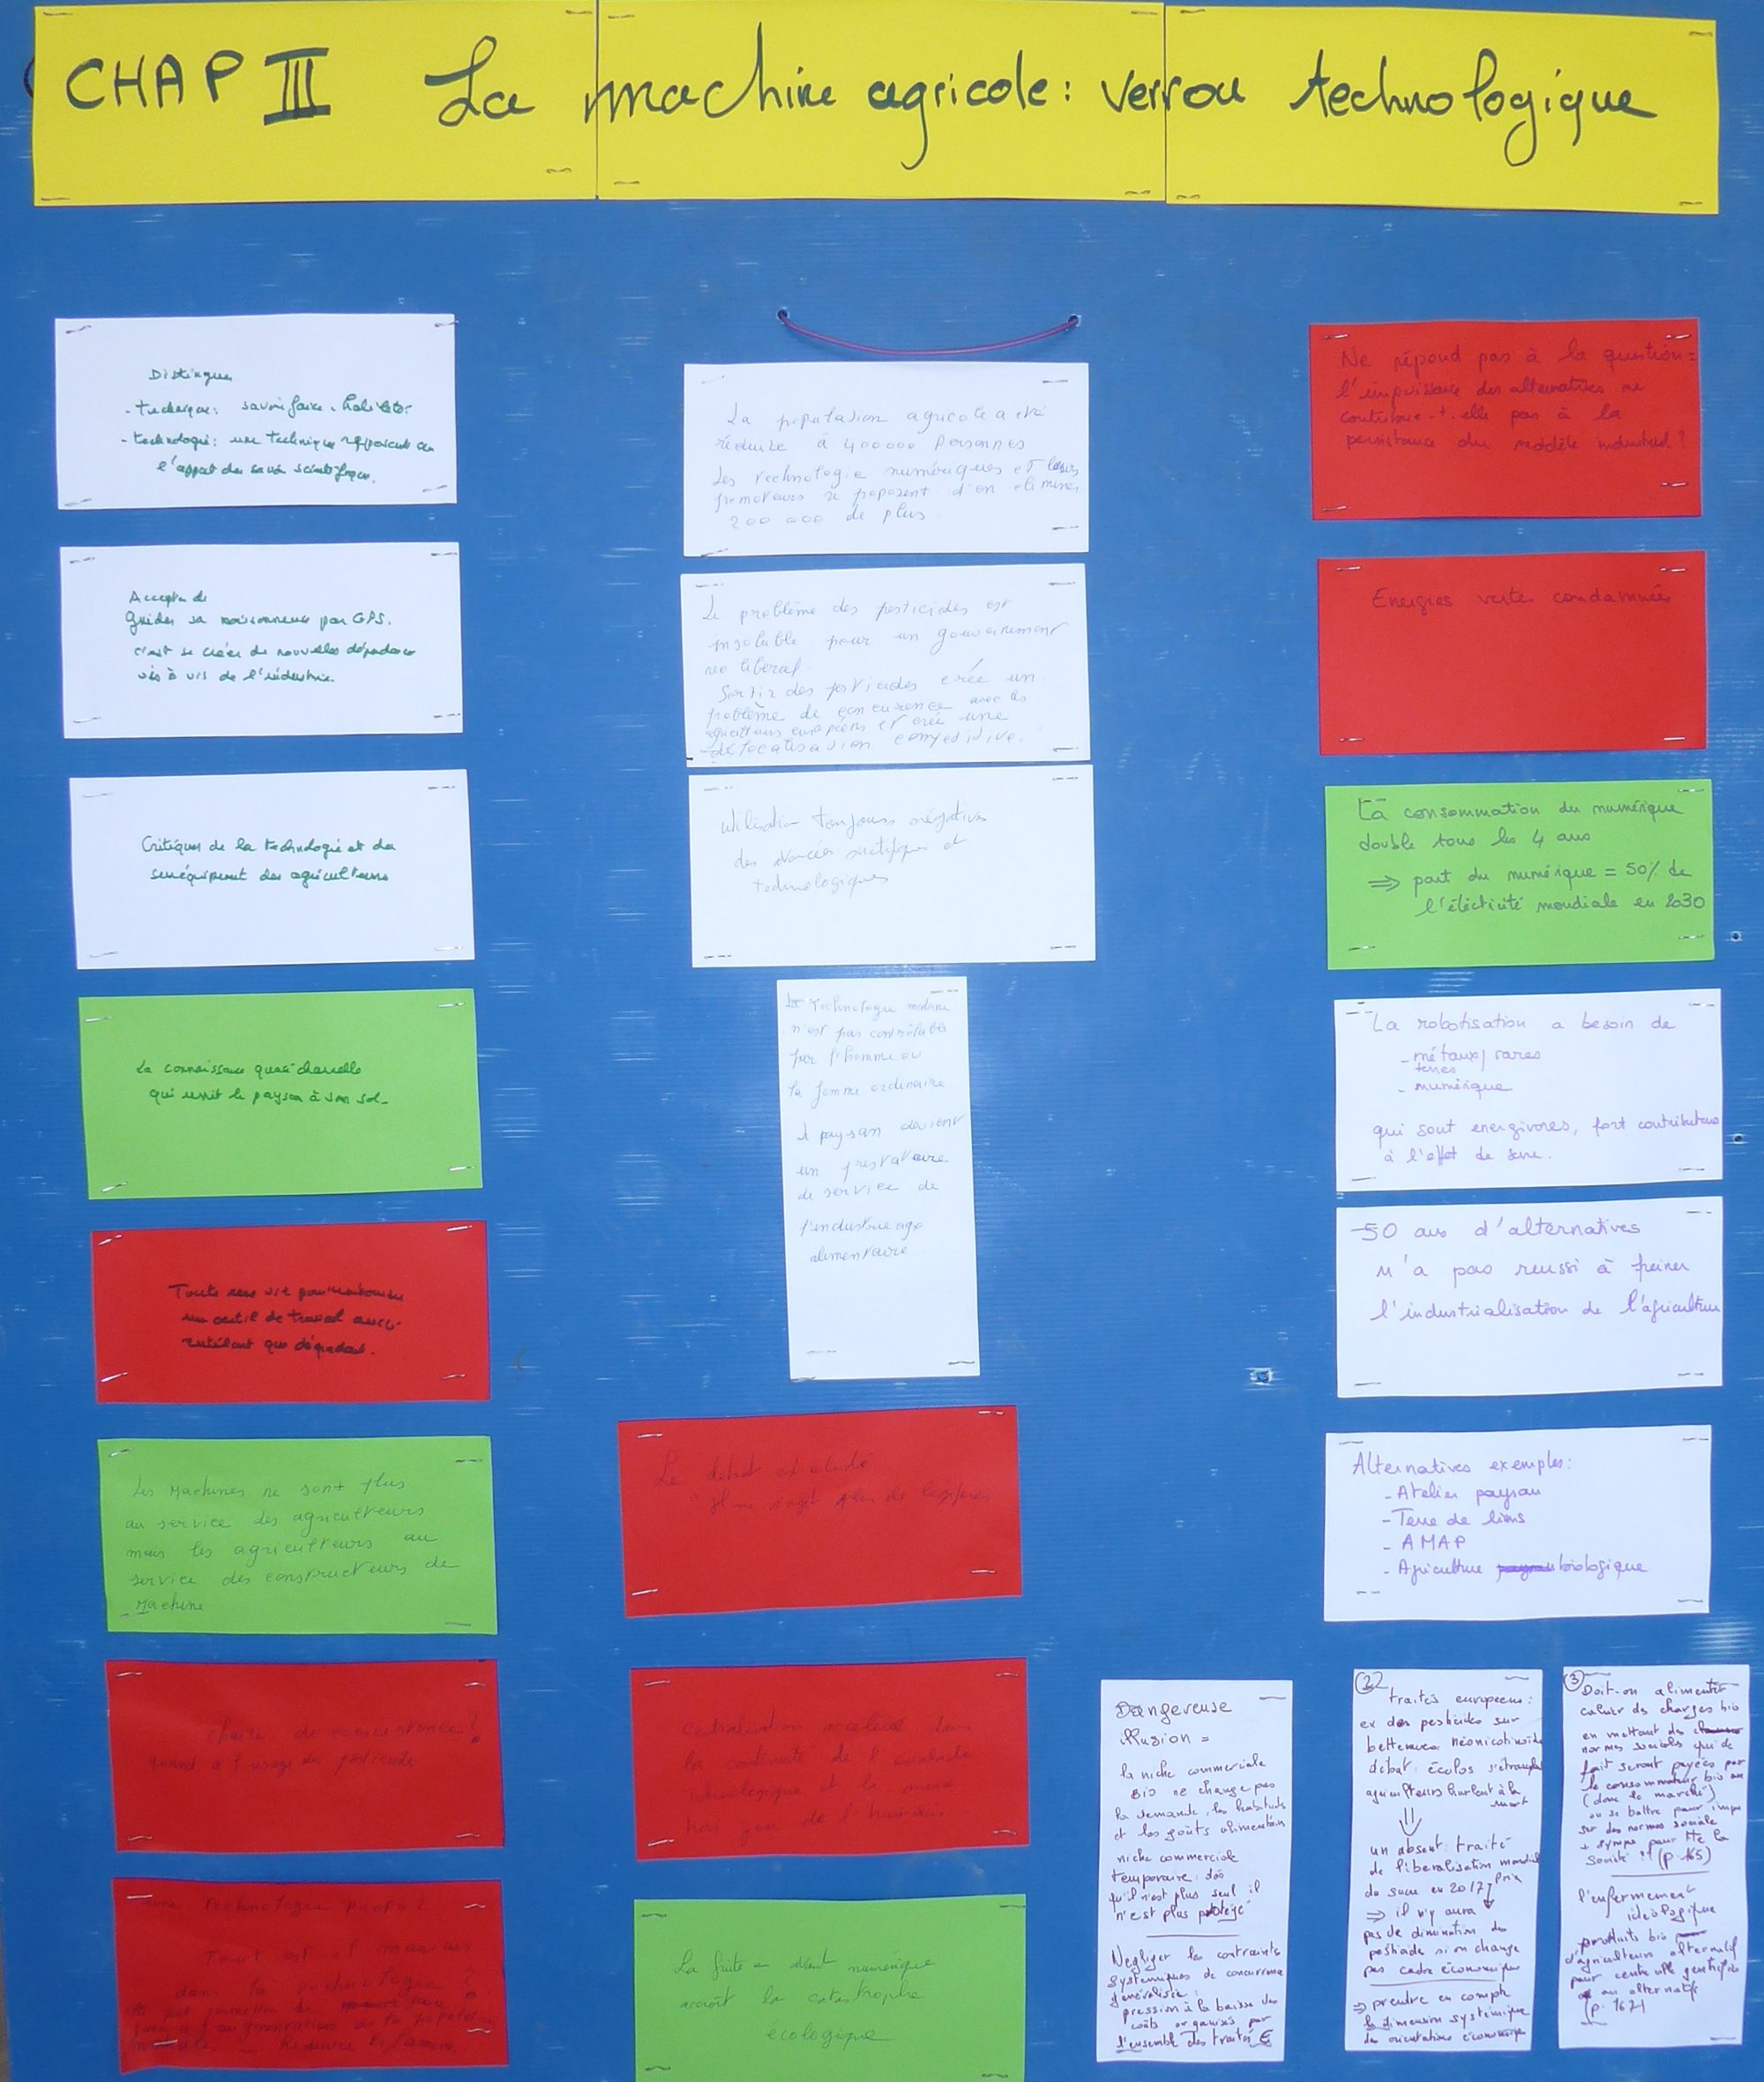 CHAP III La machine agricole: verrou technologique
Distingue
- technique: savoir faire, habileté
- technologie: une technique reposant sur
l'apport du savoir scientifique.
Accepter de
guider sa moissonneuse par GPS.
c'est se créer de nouvelles dépendances
vis à vis de l'industrie.
Critiques de la technologie et du
suréquipement des agriculteurs
La connaissance quasi charnelle
qui unit le paysan à son sol-
Toute une vie pour
un outil de travail aussi
rutilant que dégradant.
Les Machines ne sont plus
au service des agriculteurs
mais les agriculteurs au
service des constructeurs de
Machine
de coexistence?
quand à l'usage des pesticides
une technologie propre?
Tout est-il mauvais
dans la technologie?
La population agricole a été
réduite à 400000 personnes
Les technologie numériques et leurs
promoteurs se proposent d'en éliminer
200 000 de plus.
Le problème des pesticides est
insoluble pour un gouvernement
neo liberal.
Sortir des pesticides crée un
problème de concurrence avec les
agriculteurs européens et crée une
délocalisation compétitive.
Utilisation toujours négative
des avancées scientifiques et
technologiques
La Technologie moderne
n'est pas contrôlable
par l'homme ou
la femme ordinaire.
Le paysan devient
un prestataire
de service de
l'industrie agro
alimentaire
Le débat est éludé
il ne s'agit plus de légiférer
Centralisation dans
la continuité de l'escalade
technologique et la
La fuite en avant numérique
accroît la catastrophe
écologique
Ne répond pas à la question =
l'impuissance des alternatives ne
contribue-t-elle pas à la
persistance du modèle industriel?
Energies vertes condamnées
La consommation du numérique
double tous les 4 ans
⇒ part du numérique = 50% de
l'éléctricité mondiale en 2030
La robotisation a besoin de
- métaux / rares
terres
- numérique
qui sont energivores, fort contributeurs
à l'effet de serre.
50 ans d'alternatives
n'a pas reussi à freiner
l'industrialisation de l'agriculture
Alternatives exemples:
- Atelier paysan
- Terre de liens
- AMAP
- Agriculture biologique
Dangereuse
illusion =
la niche commerciale
Bio ne change pas
la demande, les habitudes
et les goûts alimentaires
niche commerciale
temporaire: dès
qu'il n'est plus seul il
n'est plus protégé
Negliger les contraintes
systemiques de concurrence
généralisée:
pression à la baisse des
coûts organisés par
l'ensemble des traités €
2
traités européens:
ex des pesticides sur
betteraves néonicotinoïde
débat: écolos s'étranglent
agriculteurs hurlent à la
mort
⇓
un absent: traité
de liberalisation mondial
du sucre en 2017 Prix ↓
⇒ il n'y aura
pas de diminution des
pesticide si on change
pas cadre économique
⇒ prendre en compte
la dimension systémique
des orientations économique
3
Doit-on alimenter
cahier de charges bio
en mettant des
normes sociales qui de
fait seront payées par
le consommateur bio
(donc le marché)
ou se battre pour
sur des normes sociale
+ sympa pour tte la
société !! (p. 165)
l'enfermement
idéologique
produits bio
d'agriculteurs alternatif
pour
au alternatifs
(p. 162)